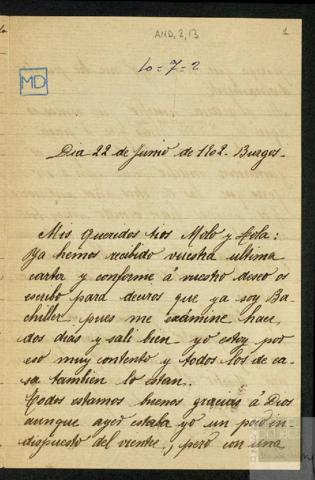 AMD, 2, 13
1
MD
10=7=2
Dia 22 de Junio de 1902. Burgos.
Mis queridos tios Melo y Lola:
Ya hemos recibido vuestra ultima
carta y conforme á vuestro deseo os
escribo para deciros que ya soy Ba-
chiller pues me examine hace
dos dias y sali bien yo estoy por
eso muy contento y todos los de ca-
sa tambien lo estan.
Todos estamos buenos gracias á Dios
aunque ayer estaba yo un poco in-
dispuesto del vientre; pero con una